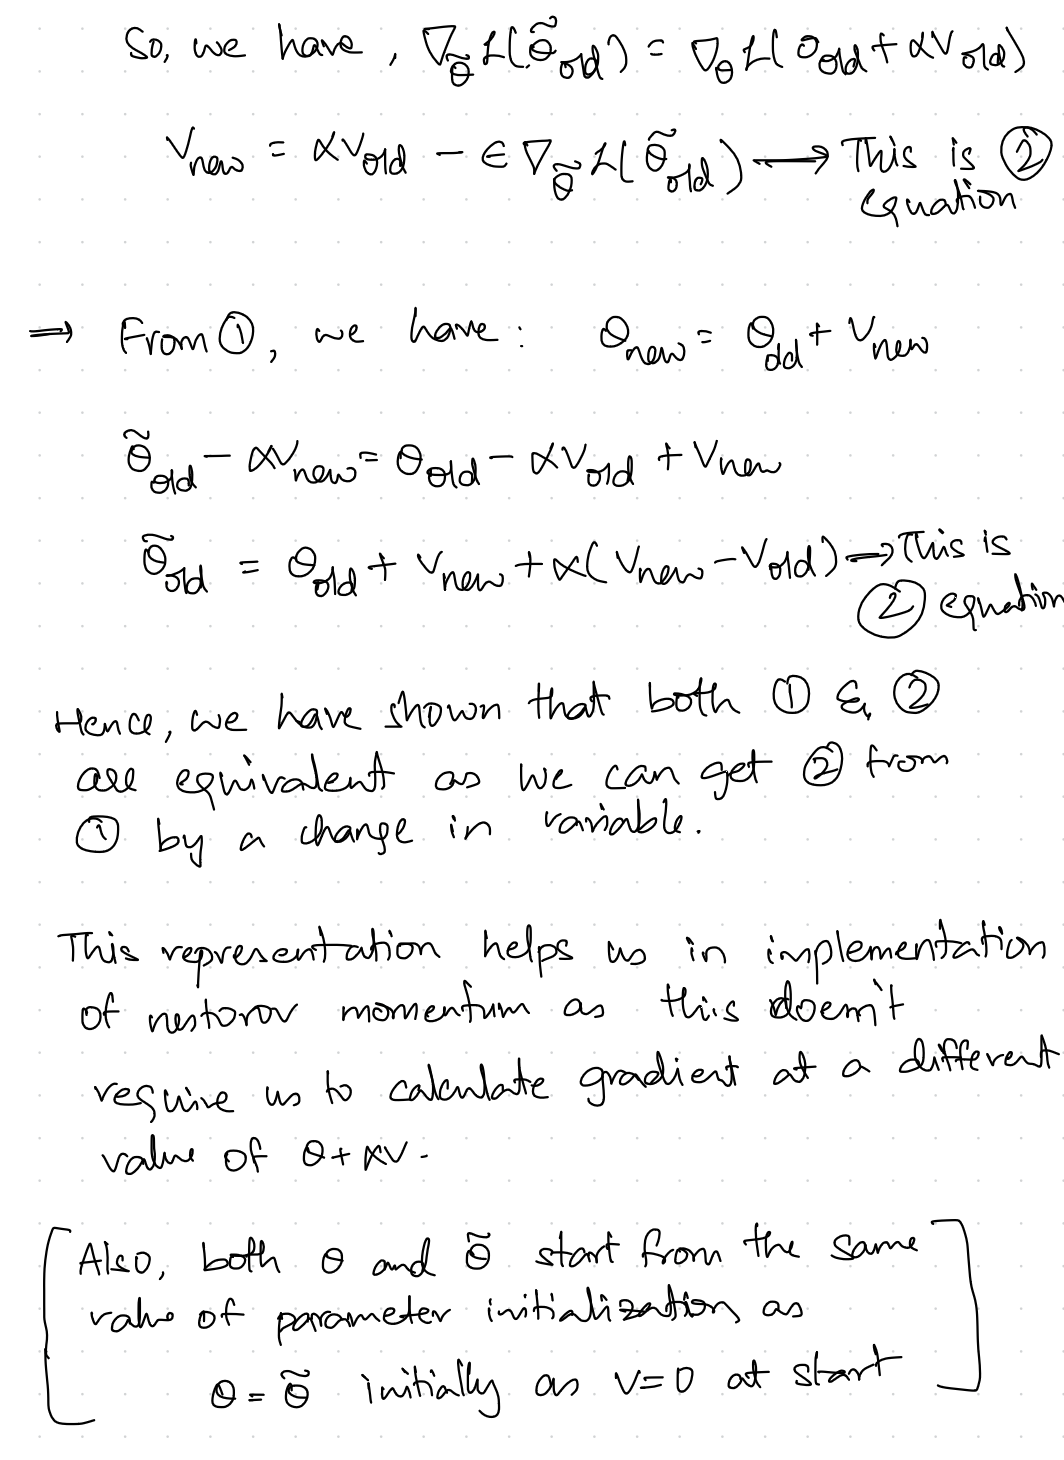 So, we have, ∇_θ̃ L(θ̃_old) = ∇_θ L(θ_old + αv_old)
v_new = αv_old − ϵ∇_θ̃ L(θ̃_old) ⟶ This is ②
equation
⇒ From ①, we have: θ_new = θ_old + v_new
θ̃_old − αv_new = θ_old − αv_old + v_new
θ̃_old = θ_old + v_new + α(v_new − v_old) → This is
② equation
Hence, we have shown that both ① & ②
are equivalent as we can get ② from
① by a change in variable.
This representation helps us in implementation
of nestorov momentum as this doesn't
require us to calculate gradient at a different
value of θ + αv.
[Also, both θ and θ̃ start from the same
value of parameter initialization as
θ = θ̃ initially as v = 0 at start]